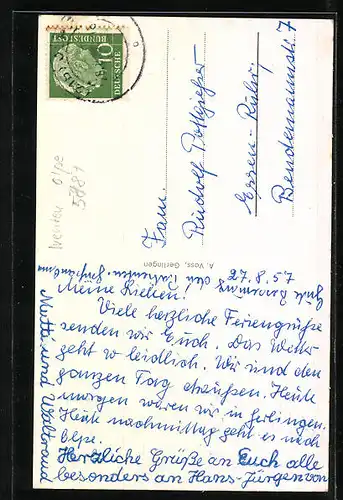 DEUTSCHE
BUNDESPOST
10
Fam.
Rudolf Postgießer
Essen-Ruhr
Bendemannstr. 7
Olpe
5881
A. Voss, Gerlingen
27.8.57
Meine Lieben!
Viele herzliche Feriengrüße
senden wir Euch. Das Wetter
geht so leidlich. Wir sind den
ganzen Tag draußen. Heute
morgen waren wir in Gerlingen.
Heute nachmittag geht es nach
Olpe.
Herzliche Grüße an Euch alle
besonders an Hans-Jürgen von
Mutti und Waltraud
Gute